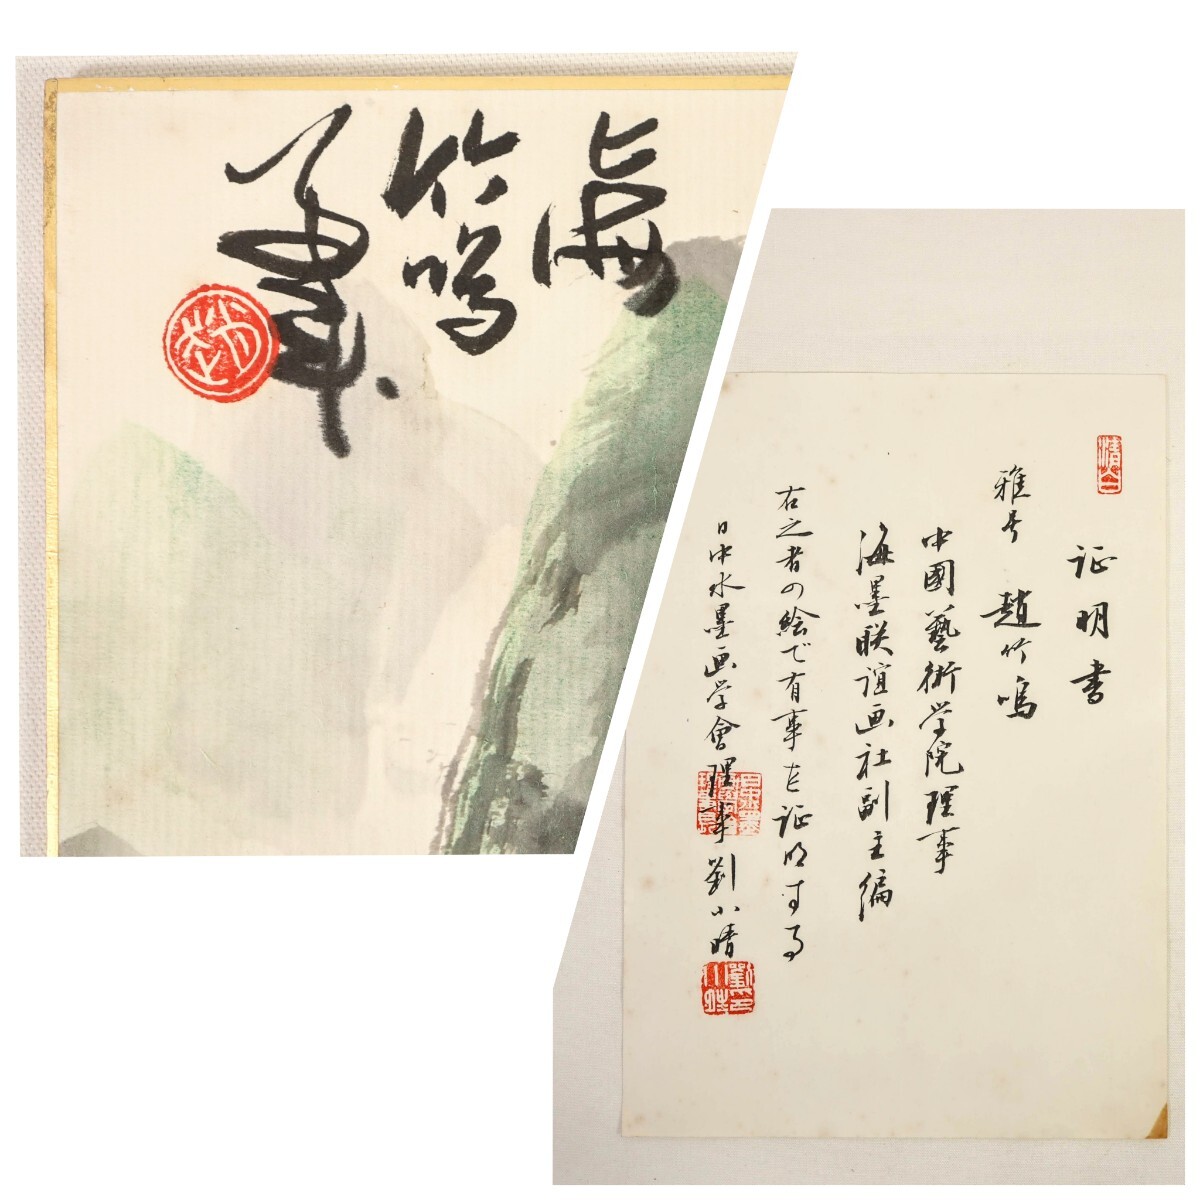 上海
竹鸣
筆
证明书
雅号 趙竹鸣
中國藝術学院理事
海墨联谊画社副主编
右之者の絵で有事を证明する
日中水墨画学會理事 劉小晴